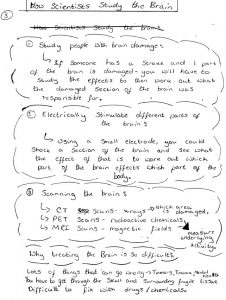 How Scientists Study the Brain
③
How Scientists Study the brain
① Study people with brain damage:
↳ If someone has a stroke and 1 part
of the brain is damaged - you will have to
Study the effects to then work out what
the damaged section of the brain was
responsible for.
② Electrically Stimulate different parts of
the brain:
↳ Using a small electrode, you could
shock a section of the brain and see what
the effect of that is to work out which
part of the brain effects which part of the
body.
③ Scanning the brain:
↳ CT Scans - x-rays → which area is damaged,
↳ PET Scans - radioactive chemicals,
↳ MRI Scans - magnetic fields
measure
underlying
activity
Why treating the Brain is so difficult:
Lots of things that can go wrong → Tumors, Trauma, Mental Health
You have to get through the Skull and Surrounding fragile tissue
Difficult to fix with drugs / chemicals.